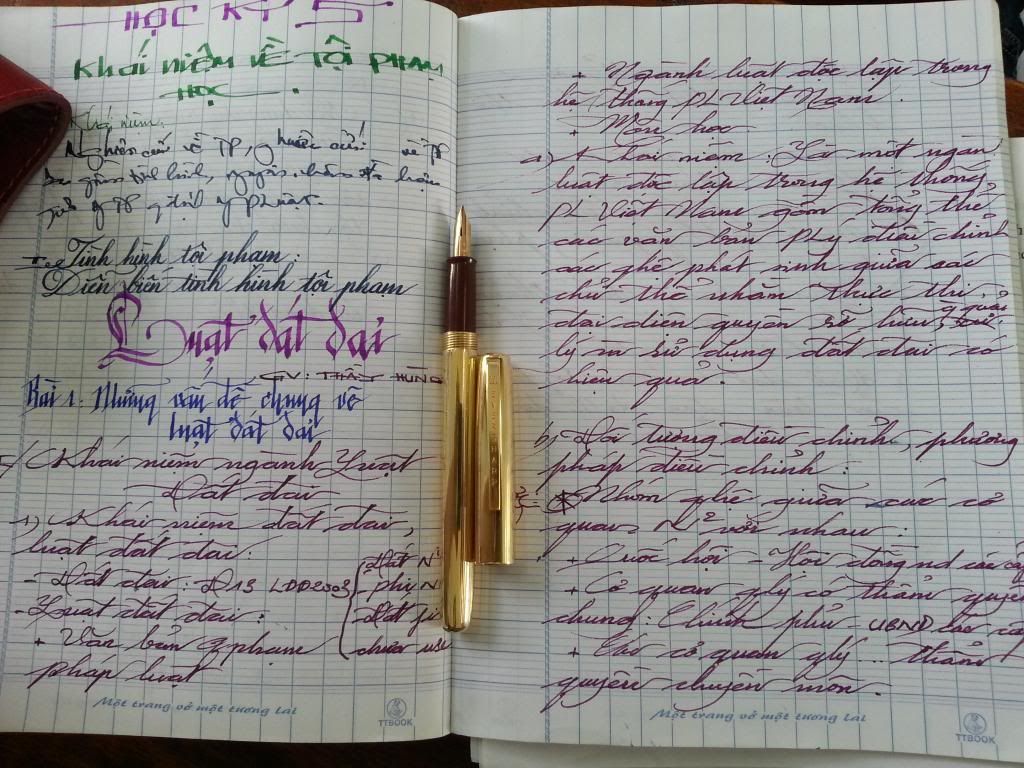 HỌC KỲ 5
Khái niệm về Tội phạm
học.
Khái niệm.
Nghiên cứu về TP, về TP
tình hình, nguyên nhân
Tình hình tội phạm:
Diễn biến tình hình tội phạm
Luật đất đai
GV: THẦY HÙNG
Bài 1: Những vấn đề chung về
luật đất đai
Khái niệm ngành Luật
Đất đai
1) Khái niệm đất đai,
luật đất đai:
- Đất đai: Đ13 LDD2003
Đất N²
phi N²
Đất
chưa
- Luật đất đai:
+ Văn bản qphạm
pháp luật
Một trang vở một tương lai
TTBOOK
+ Ngành luật độc lập trong
hệ thống PL Việt Nam.
+ Môn học
a) Khái niệm: Là một ngành
luật độc lập trong hệ thống
PL Việt Nam gồm tổng thể
các văn bản PLý điều chỉnh
các qhệ phát sinh giữa các
chủ thể nhằm thực thi,
đại diện quyền sở hữu, quản
lý sử dụng đất đai có
hiệu quả.
b) Đối tượng điều chỉnh, phương
pháp điều chỉnh:
Nhóm qhệ giữa các cơ
quan N² với nhau:
+ Quốc hội - Hội đồng nd các cấp
+ Cơ quan qlý có thẩm quyền
chung: Chính phủ - UBND các cấp
+ cơ quan qlý ... thẩm
quyền chuyên môn.
Một trang vở một tương lai
TTBOOK